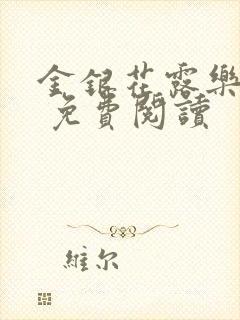 金銀花露樂
免費閱讀
維尔